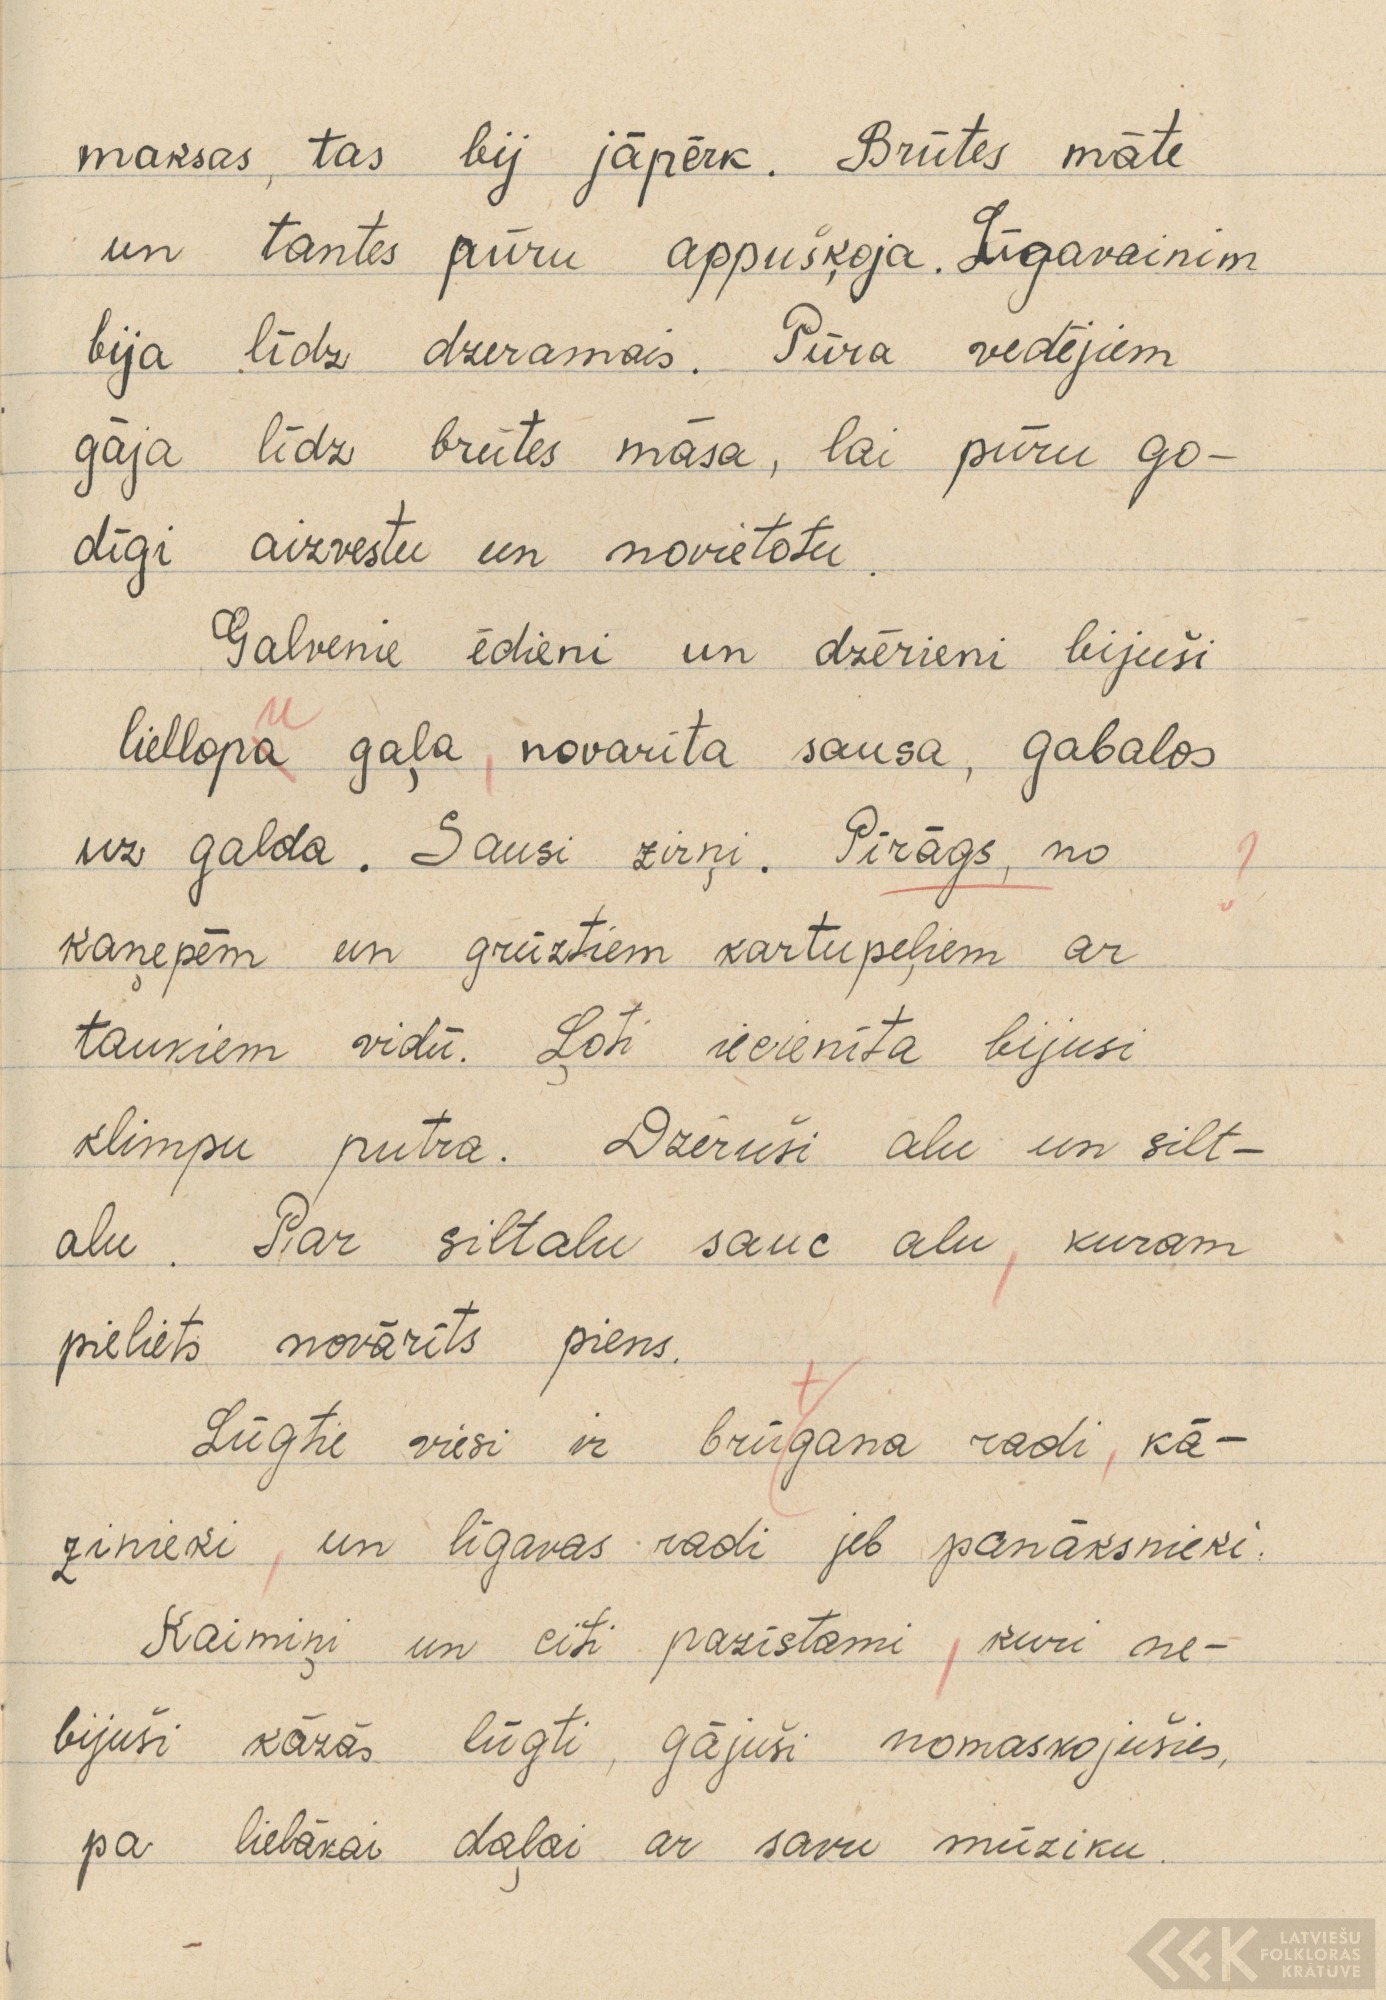 maksas, tas bij jāpērk. Brūtes māte
un tantes pūru appušķoja. Līgavainim
bija līdz dzeramais. Pūra vedējiem
gāja līdz brūtes māsa, lai pūru go-
dīgi aizvestu un novietotu.
Galvenie ēdieni un dzērieni bijuši
u
liellopa gaļa, novarīta sausa, gabalos
uz galda. Sausi zirņi. Pīrāgs, no ?
kaņepēm un grūztiem kartupeļiem ar
taukiem vidū. Ļoti iecienīta bijusi
klimpu putra. Dzēruši alu un silt-
alu. Par siltalu sauc alu, kuram
pieliets novārīts piens.
t
Lūgtie viesi ir brūgana radi, kā-
zinieki, un līgavas radi jeb panāksnieki.
Kaimiņi un citi pazīstami, kuri ne-
bijuši kāzās lūgti, gājuši nomaskojušies,
pa lielākai daļai ar savu mūziku.
LATVIEŠU
FOLKLORAS
KRĀTUVE